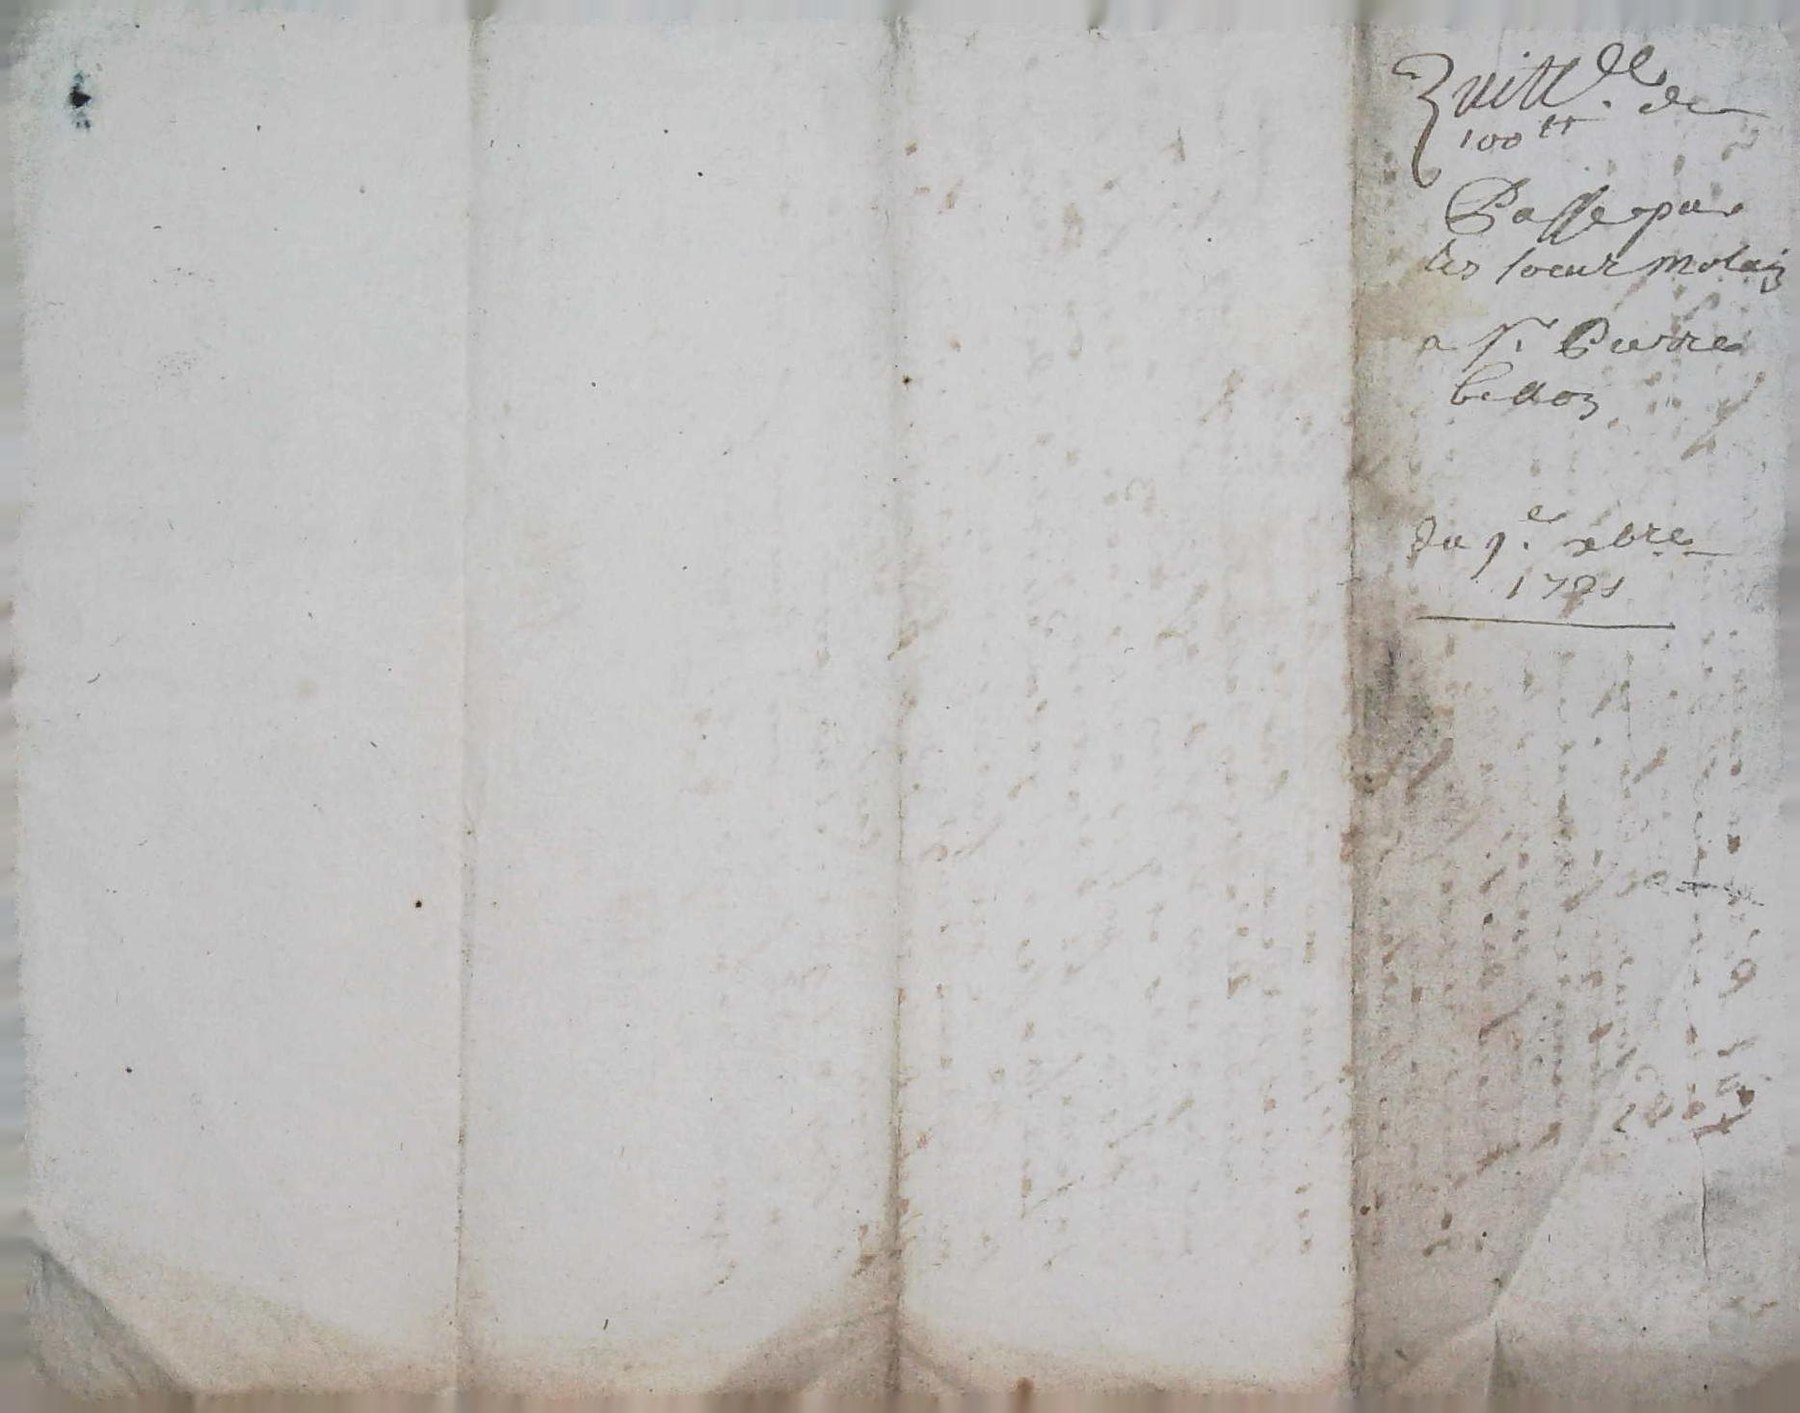 Quitt.ce de
100 tt
Passe par
les soeur molain
a sr. Pierre
bellon
Du 9.e xbre